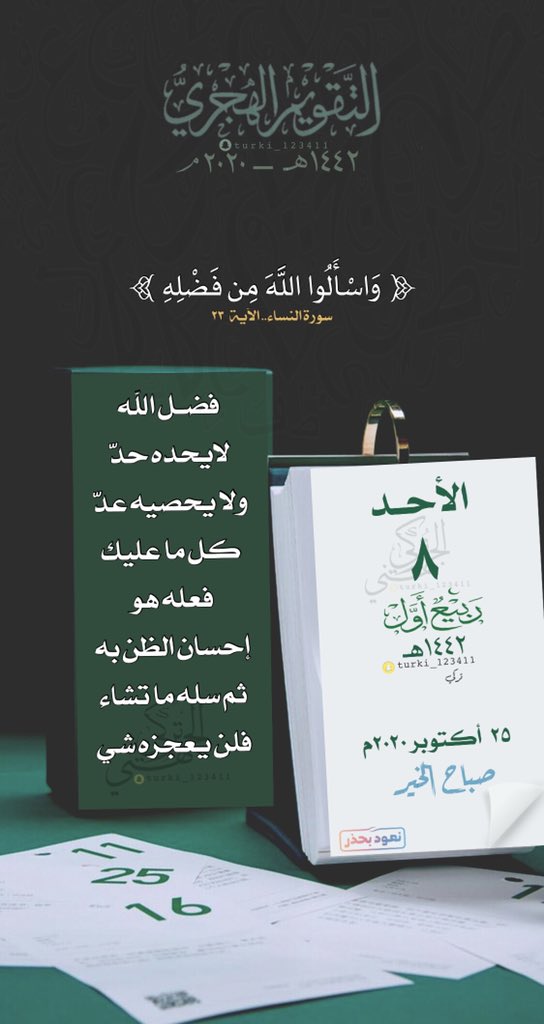 التَّقويم الهُجريُّ
turki_123411
١٤٤٢هـ – ٢٠٢٠م
﴿ وَاسْأَلُوا اللَّهَ مِن فَضْلِهِ ﴾
سورة النساء..الآية ٢٣
فضل الله
لايحده حدّ
ولا يحصيه عدّ
كل ما عليك
فعله هو
إحسان الظن به
ثم سله ما تشاء
فلن يعجزه شي
turki_123411
الأحد
٨
turki_123411
رَبيعُ أَوَّل
١٤٤٢هـ
turki_123411
تركي
٢٥ أكتوبر ٢٠٢٠م
صباح الخير
نعود بحذر
11
25
16